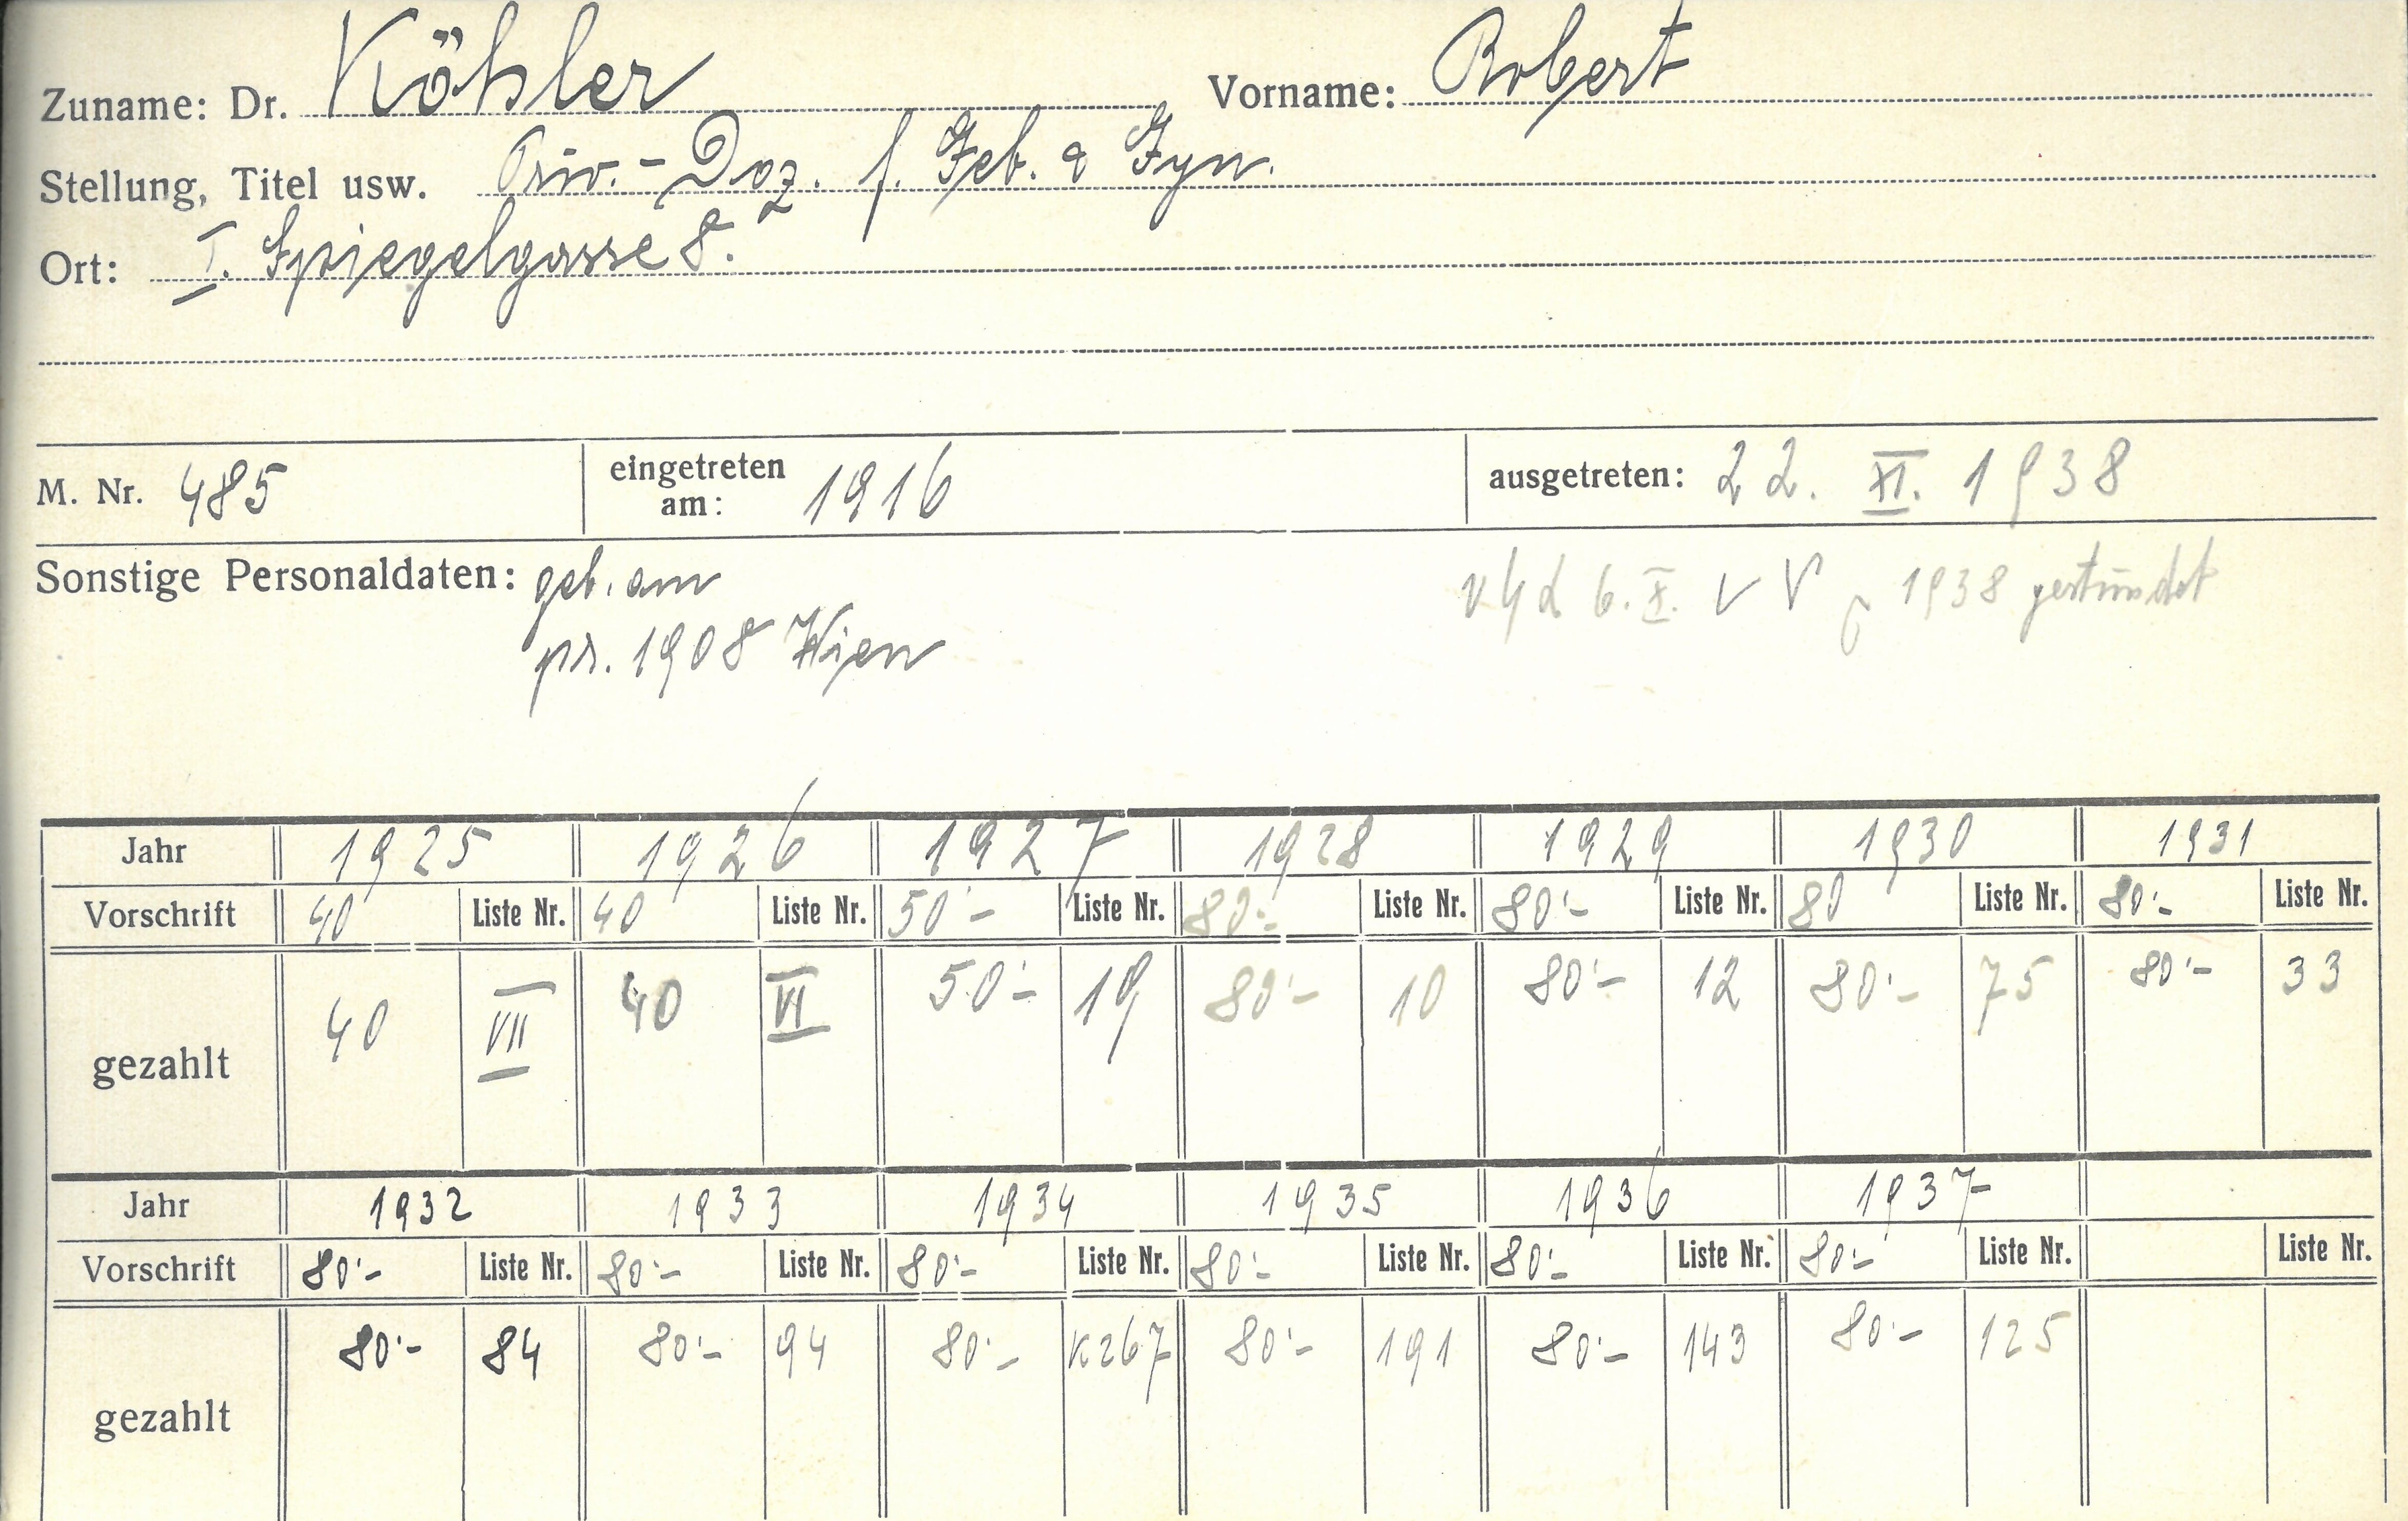 Zuname: Dr. Köhler Vorname: Robert
Stellung, Titel usw. Priv.-Doz. f. Geb. & Gyn.
Ort: I. Spiegelgasse 8.
M. Nr. 485 eingetreten am: 1916 ausgetreten: 22. XI. 1938
Sonstige Personaldaten: geb. am
6. X. 1938 gestundet
pr. 1908 Wien
Jahr 1925 1926 1927 1928 1929 1930 1931
Vorschrift 40 Liste Nr. 40 Liste Nr. 50'- Liste Nr. 80'- Liste Nr. 80'- Liste Nr. 80 Liste Nr. 80'- Liste Nr.
gezahlt 40 VII 40 VI 50'- 19 80'- 10 80'- 12 80'- 75 80'- 33
Jahr 1932 1933 1934 1935 1936 1937
Vorschrift 80'- Liste Nr. 80'- Liste Nr. 80'- Liste Nr. 80'- Liste Nr. 80'- Liste Nr. 80'- Liste Nr. Liste Nr.
gezahlt 80'- 84 80'- 94 80'- K267 80'- 191 80'- 143 80'- 125